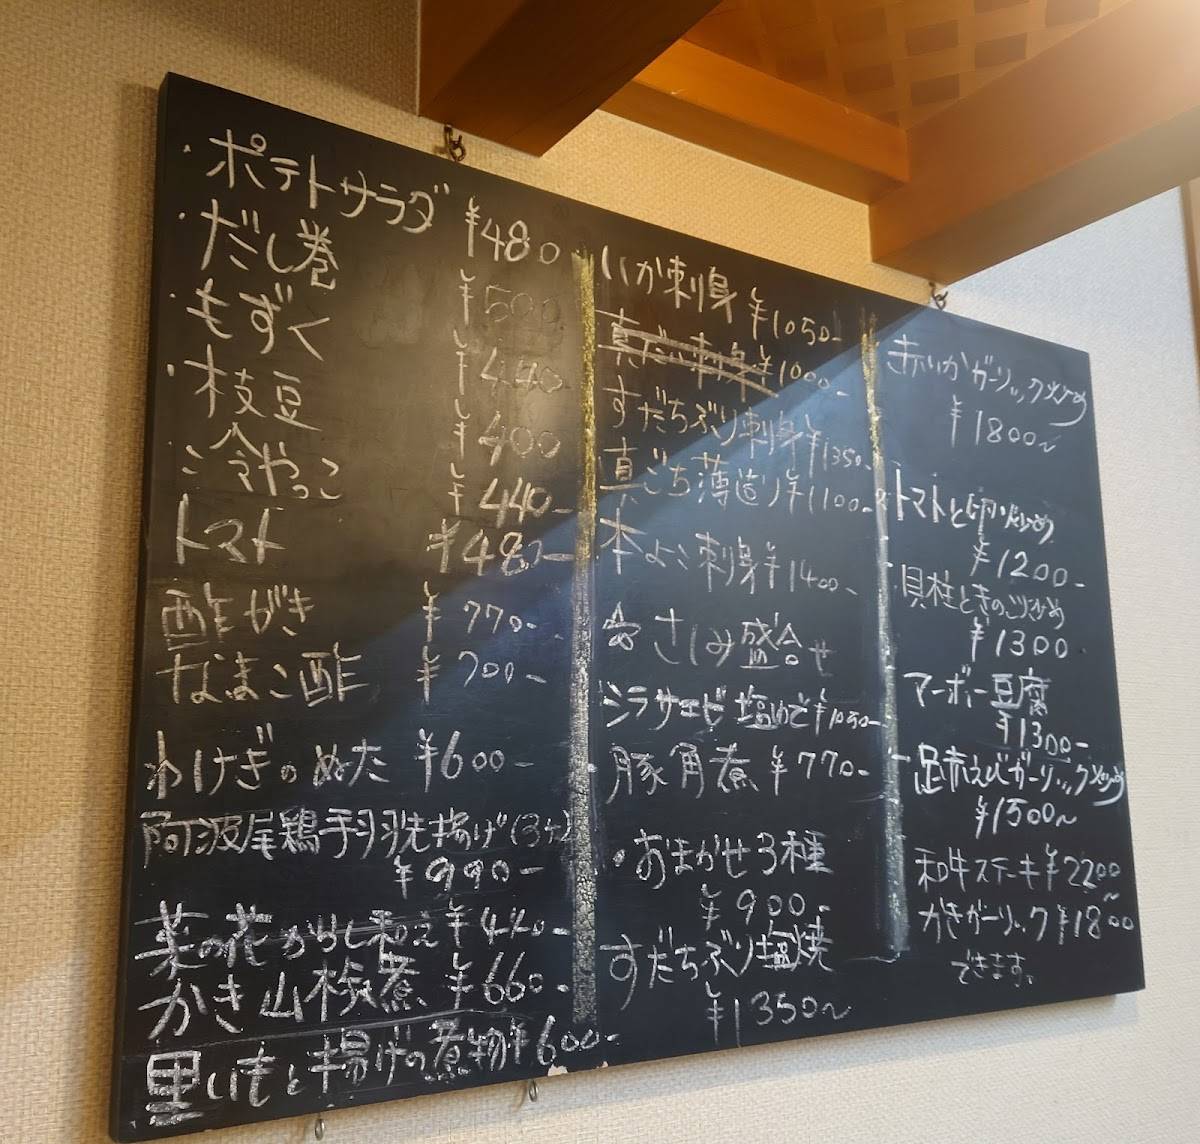 ・ポテトサラダ ¥480
・だし巻 ¥500
・もずく ¥440
・枝豆 ¥400
冷やっこ ¥440-
トマト ¥480-
酢がき ¥770-
なまこ酢 ¥700-
わけぎのぬた ¥600-
阿波尾鶏手羽先揚げ(3ヶ)
¥990-
菜の花からし和え ¥440-
かき山椒煮 ¥660-
里いもと揚げの煮物 ¥600-
いか刺身 ¥1050-
真だい刺身 ¥1000-
すだちぶり刺身 ¥1350-
真ごち薄造り ¥1100-
本よこ刺身 ¥1400-
☆さしみ盛合せ
シラサエビ塩ゆで ¥1050-
豚角煮 ¥770-
・おまかせ3種
¥900-
すだちぶり塩焼
¥1350~
赤いかガーリック炒め
¥1800~
トマトと卵の炒め
¥1200-
貝柱ときのこ炒め
¥1300
マーボー豆腐
¥1300-
足赤えびガーリック炒め
¥1500~
和牛ステーキ ¥2200~
かきガーリック ¥1800
できます。